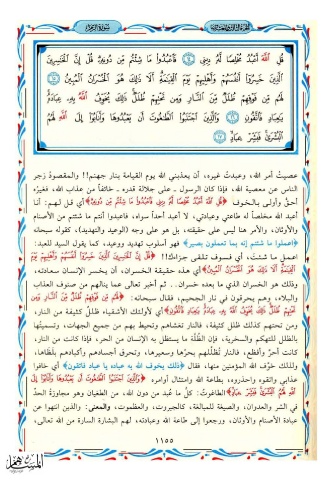 سورة الزمر
قُلِ ٱللَّهَ أَعْبُدُ مُخْلِصًا لَّهُ دِينِي ۝ فَٱعْبُدُوا مَا شِئْتُم مِّن دُونِهِ ۗ قُلْ إِنَّ ٱلْخَٰسِرِينَ
ٱلَّذِينَ خَسِرُوٓا أَنفُسَهُمْ وَأَهْلِيهِمْ يَوْمَ ٱلْقِيَٰمَةِ ۗ أَلَا ذَٰلِكَ هُوَ ٱلْخُسْرَانُ ٱلْمُبِينُ ۝
لَهُم مِّن فَوْقِهِمْ ظُلَلٌ مِّنَ ٱلنَّارِ وَمِن تَحْتِهِمْ ظُلَلٌ ۚ ذَٰلِكَ يُخَوِّفُ ٱللَّهُ بِهِ عِبَادَهُ ۚ
يَٰعِبَادِ فَٱتَّقُونِ ۝ وَٱلَّذِينَ ٱجْتَنَبُوا ٱلطَّٰغُوتَ أَن يَعْبُدُوهَا وَأَنَابُوٓا إِلَى ٱللَّهِ لَهُمُ
ٱلْبُشْرَىٰ ۚ فَبَشِّرْ عِبَادِ ۝
عصيتُ أمر الله، وعبدتُ غيره، أن يعذبني الله يوم القيامة بنار جهنم!! والمقصودُ زجر
الناس عن معصية الله، فإذا كان الرسول ـ على جلالة قدره ـ خائفاً من عذاب الله، فغيرُه
أحقُّ وأولى بالخوف ﴿قُلِ ٱللَّهَ أَعْبُدُ مُخْلِصًا لَّهُ دِينِي فَٱعْبُدُوا مَا شِئْتُم مِّن دُونِهِ﴾ أي قل لهم: أنا
أعبد الله مخلصاً له طاعتي وعبادتي، لا أعبد أحداً سواه، فاعبدوا أنتم ما شئتم من الأصنام
والأوثان، والأمر هنا ليس على حقيقته، بل هو على وجه (الوعيد والتهديد)، كقوله سبحانه:
﴿اعملوا ما شئتم إنه بما تعملون بصير﴾ فهو أسلوب تهديد ووعيد، كما يقول السيد للعبد:
اعمل ما شئت، أي فسوف تلقى جزاءك!! ﴿قُلْ إِنَّ ٱلْخَٰسِرِينَ ٱلَّذِينَ خَسِرُوٓا أَنفُسَهُمْ وَأَهْلِيهِمْ يَوْمَ
ٱلْقِيَٰمَةِ أَلَا ذَٰلِكَ هُوَ ٱلْخُسْرَانُ ٱلْمُبِينُ﴾ أي هذه حقيقة الخسران، أن يخسر الإنسان سعادته،
وذلك هو الخسران الذي ما بعده خسران.. ثم أخبر تعالى عما ينالهم من صنوف العذاب
والبلاء، وهم يحرقون في نار الجحيم، فقال سبحانه: ﴿لَهُم مِّن فَوْقِهِمْ ظُلَلٌ مِّنَ ٱلنَّارِ وَمِن
تَحْتِهِمْ ظُلَلٌ ذَٰلِكَ يُخَوِّفُ ٱللَّهُ بِهِ عِبَادَهُ يَٰعِبَادِ فَٱتَّقُونِ﴾ أي لأولئك الأشقياء، ظُللٌ كثيفة من النار،
ومن تحتهم كذلك ظلل كثيفة، فالنار تغشاهم وتحيط بهم من جميع الجهات، وتسميتُها
بالظلل للتهكم والسخرية، فإن الظُّلَّة ما يستظل به الإنسان من الحر، فإذا كانت من النار،
كانت أحرَّ وأفظع، فالنار تُظلِّلهم بحرِّها وسعيرها، وتحرق أجسادهم وأكبادهم بلظاها،
ولذلك خوَّف الله المؤمنين منها، فقال ﴿ذلك يخوف الله به عباده يا عباد فاتقون﴾ أي خافوا
عذابي واتقوه واحذروه، بطاعة الله وامتثال أوامره ﴿وَٱلَّذِينَ ٱجْتَنَبُوا ٱلطَّٰغُوتَ أَن يَعْبُدُوهَا وَأَنَابُوٓا إِلَى
ٱللَّهِ لَهُمُ ٱلْبُشْرَىٰ فَبَشِّرْ عِبَادِ﴾ الطاغوت: كلُّ ما عُبد من دون الله، من الطغيان وهو مجاوزة الحدِّ
في الشر والعدوان، والصيغة للمبالغة، كالجبروت، والعظموت، والمعنى: والذين انتهوا عن
عبادة الأصنام والأوثان، ورجعوا إلى طاعة الله وعبادته، لهم البشارة السارة من الله تعالى،
١١٥٥